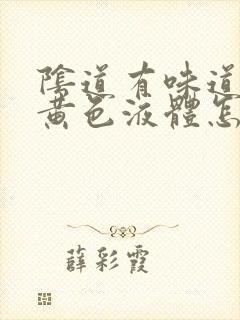 陰道有味道
黃色液體怎
薛彩霞